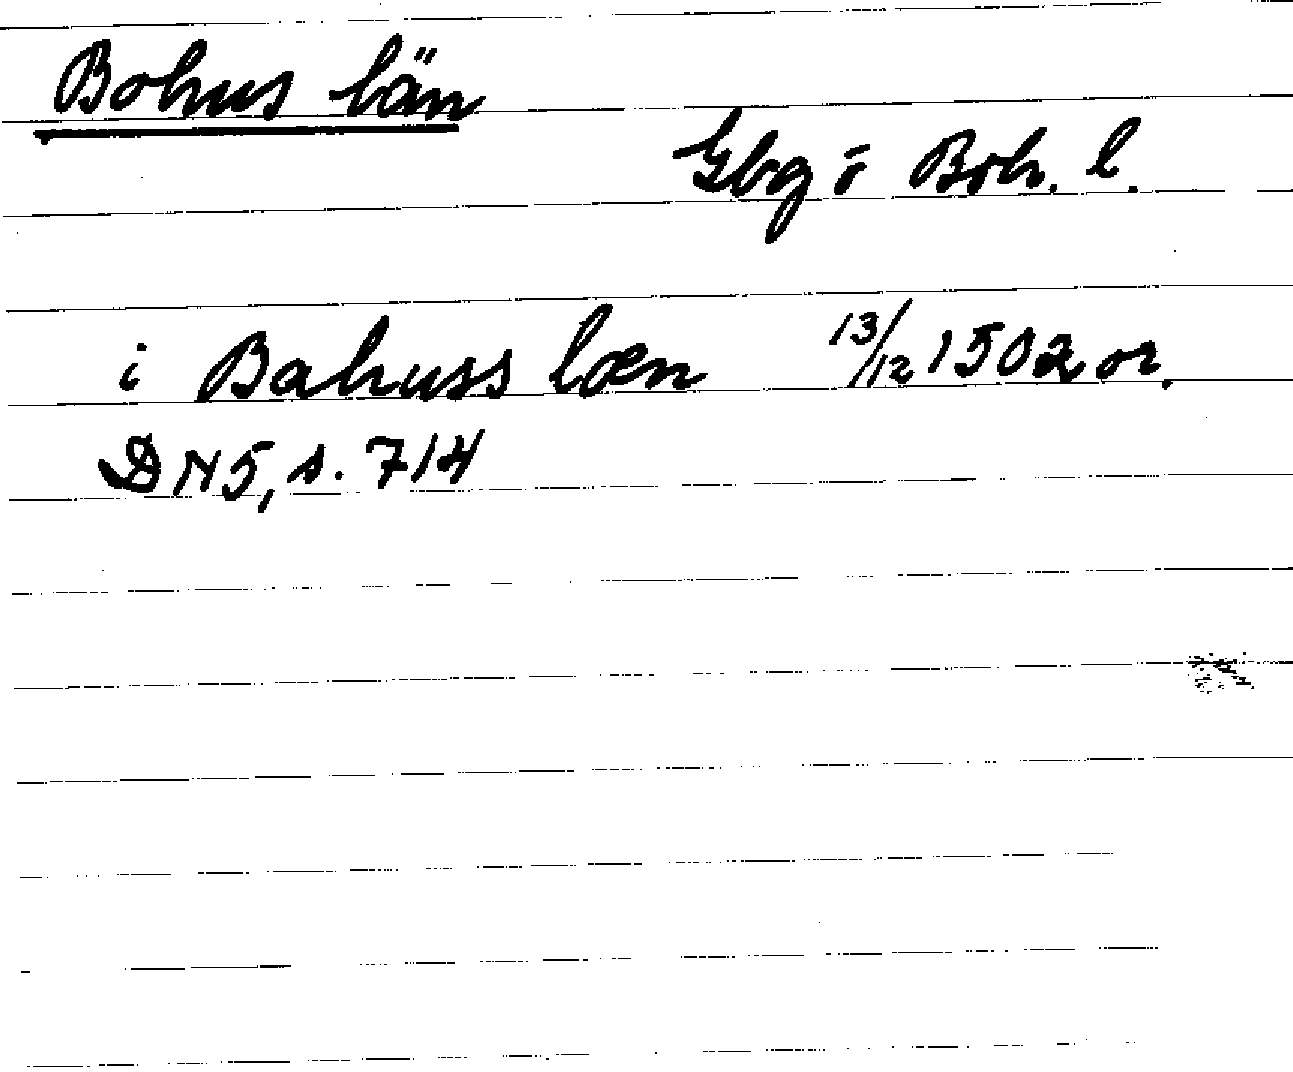 Bohus län
Gbg o Boh. l.
i Bahuss læn 13/12 1502 or.
DN 5, s. 714